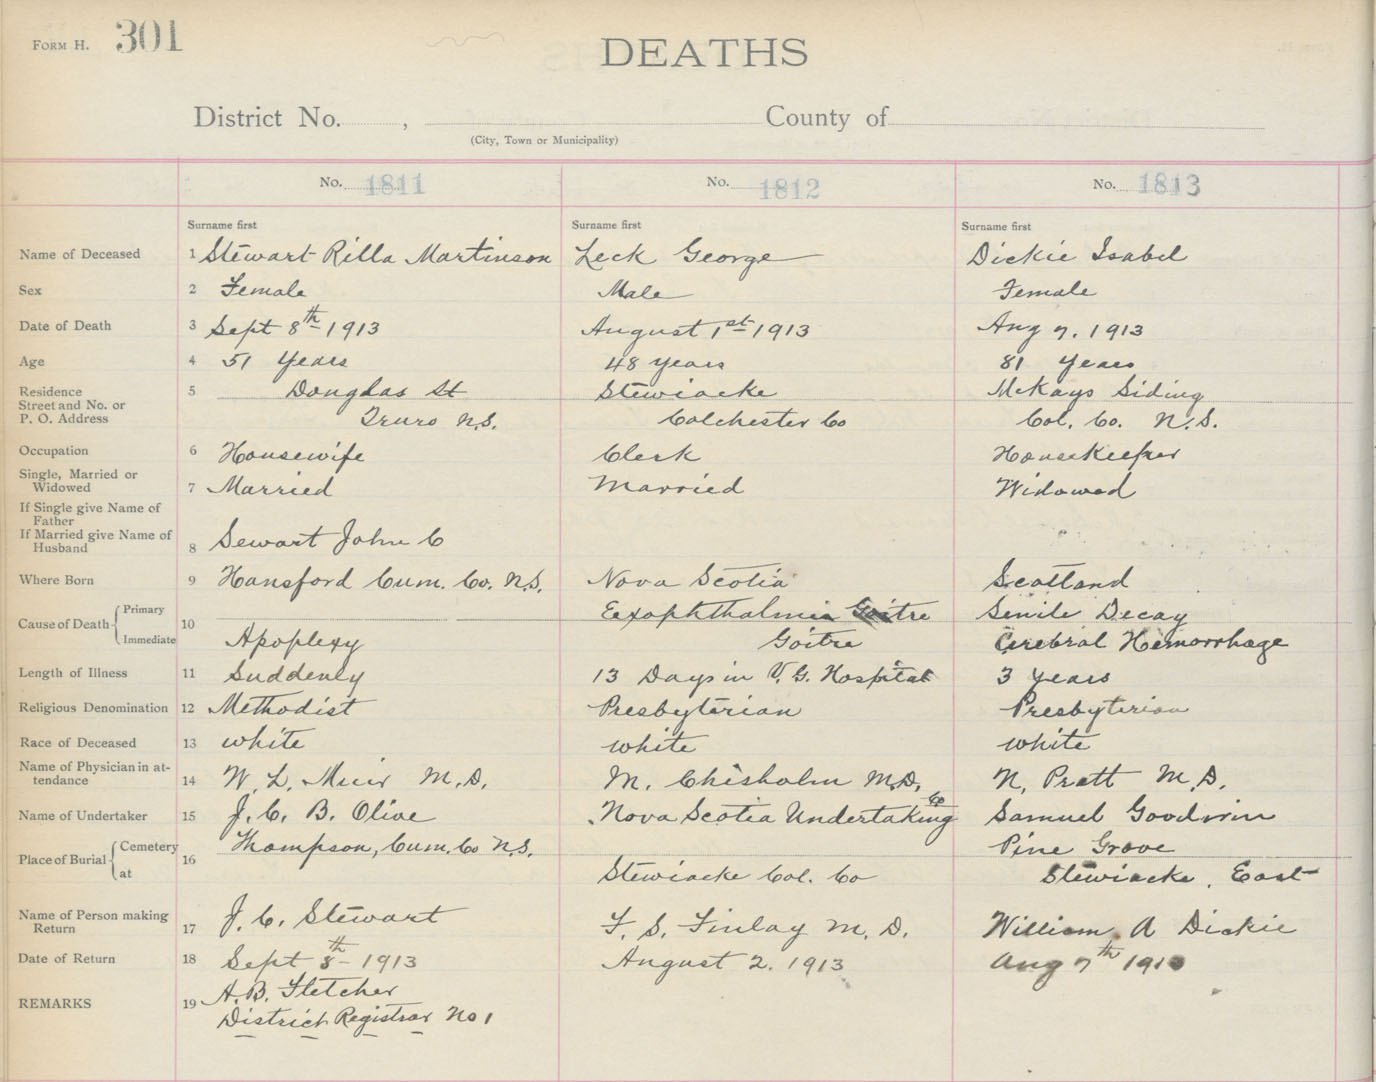 FORM H. 301
DEATHS
District No. , County of
(City, Town or Municipality)
No. 1811 No. 1812 No. 1813
Surname first Surname first Surname first
Name of Deceased 1 Stewart Rilla Martinson Leck George Dickie Isabel
Sex 2 Female Male Female
Date of Death 3 Sept 8th 1913 August 1st 1913 Aug 7. 1913
Age 4 51 Years 48 years 81 Years
Residence 5 Douglas St Stewiacke McKays Siding
Street and No. or
P. O. Address Truro N.S. Colchester Co Col. Co. N.S.
Occupation 6 Housewife Clerk Housekeeper
Single, Married or
Widowed 7 Married Married Widowed
If Single give Name of
Father
If Married give Name of
Husband 8 Sewart John C
Where Born 9 Hansford Cum. Co. N.S. Nova Scotia Scotland
Cause of Death Primary 10 Eexophthalmia Goitre Senile Decay
Immediate Apoplexy Goitre Cerebral Hemorrhage
Length of Illness 11 Suddenly 13 Days in V.G. Hospital 3 years
Religious Denomination 12 Methodist Presbyterian Presbyterian
Race of Deceased 13 white white white
Name of Physician in at-
tendance 14 W. L. Muir M.D. M. Chisholm M.D. N. Pratt M.D.
Name of Undertaker 15 J. C. B. Olive Nova Scotia Undertaking Co Samuel Goodwin
Place of Burial Cemetery 16 Thompson, Cum. Co N.S. Pine Grove
at Stewiacke Col. Co Stewiacke. East
Name of Person making
Return 17 J. C. Stewart F. S. Finlay M.D. William A Dickie
Date of Return 18 Sept 8th 1913 August 2. 1913 Aug 7th 1913
REMARKS 19 A.B. Fletcher
District Registrar No 1